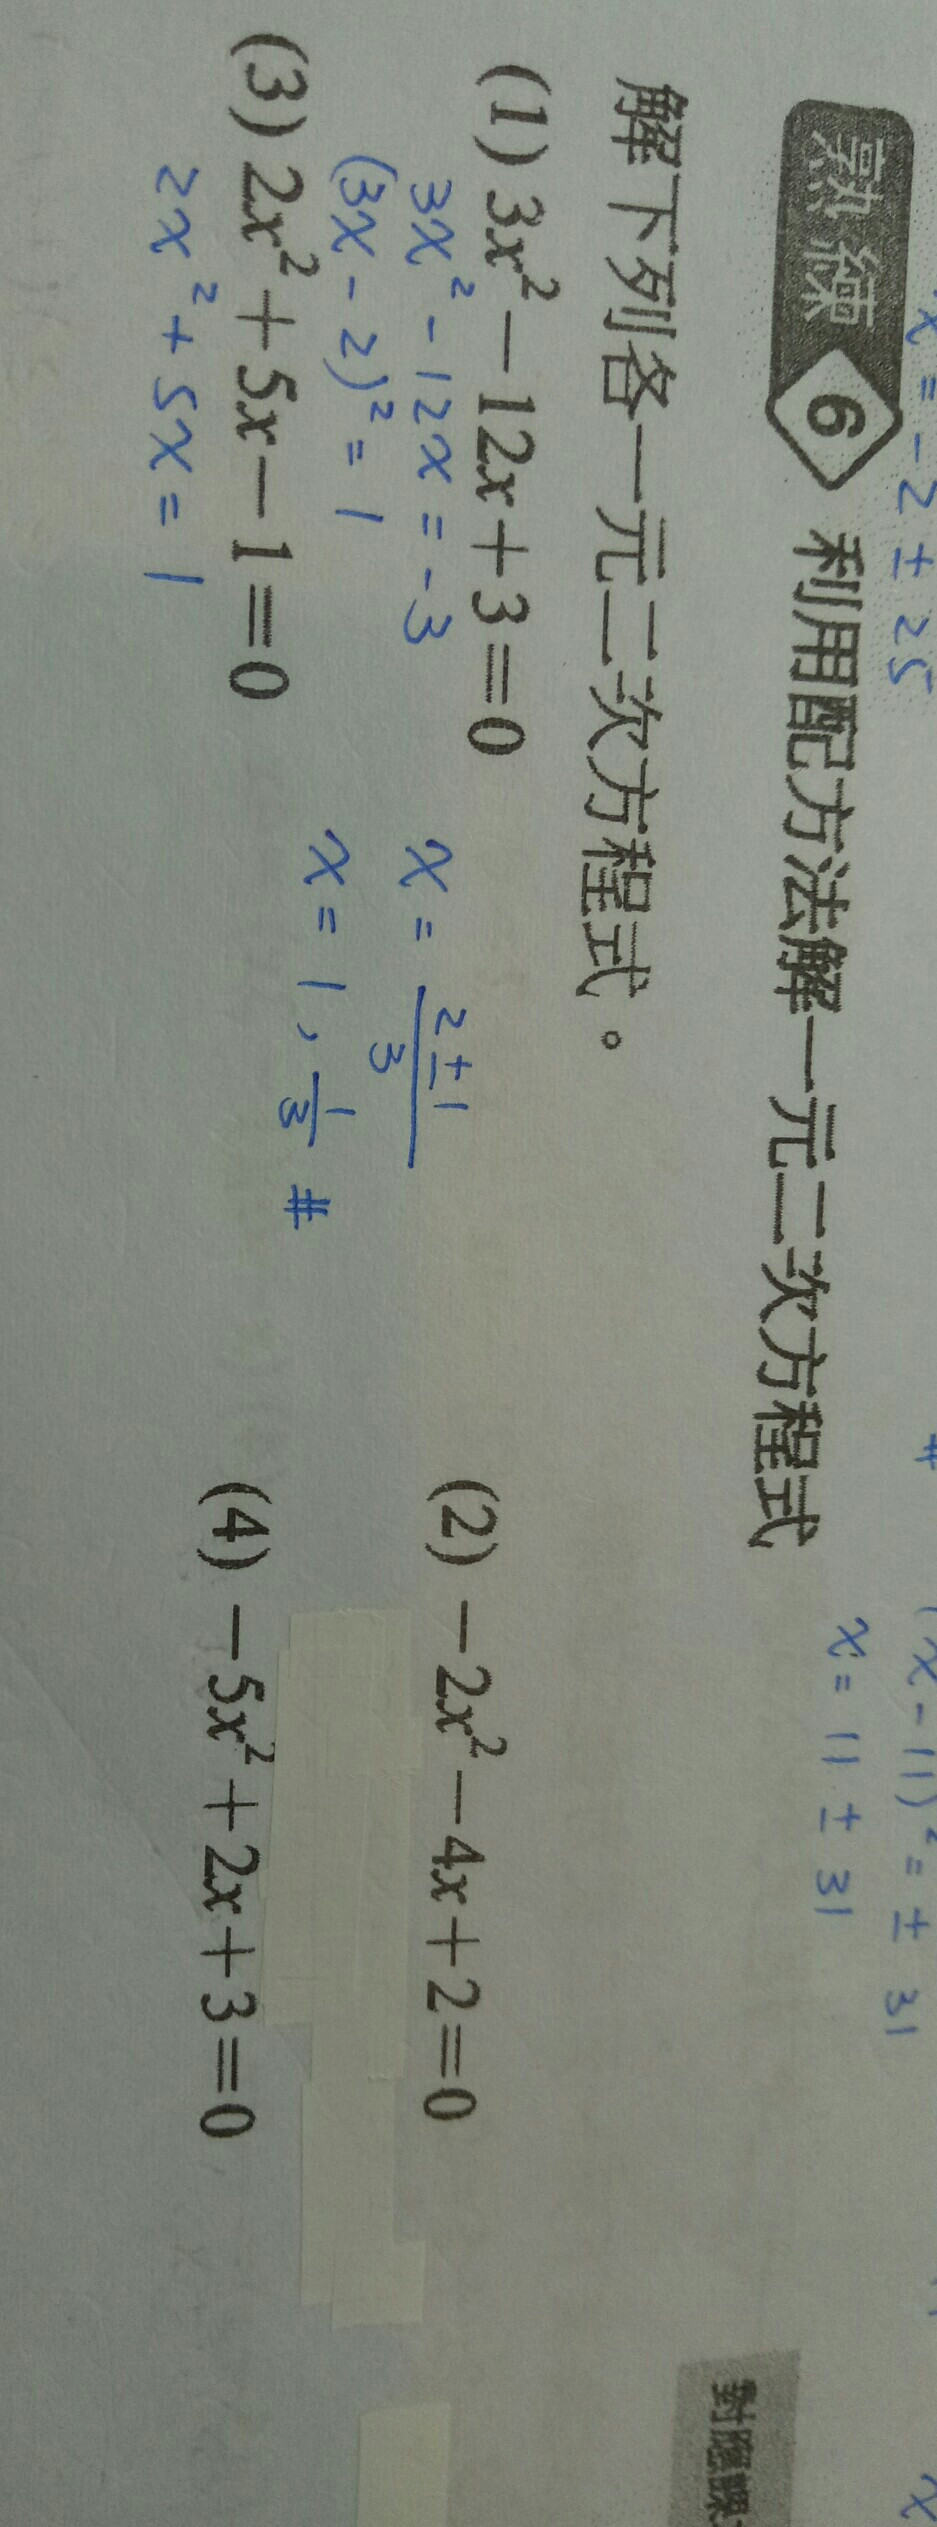 x = -2 ± 25
#
(x-11)² = ± 31
x = 11 ± 31
熟練 6 利用配方法解一元二次方程式
對應課
解下列各一元二次方程式。
(1) 3x²－12x＋3＝0
3x² - 12x = -3
(3x - 2)² = 1
x = (2±1)/3
x = 1, 1/3 #
(2) －2x²－4x＋2＝0
(3) 2x²＋5x－1＝0
2x² + 5x = 1
(4) －5x²＋2x＋3＝0